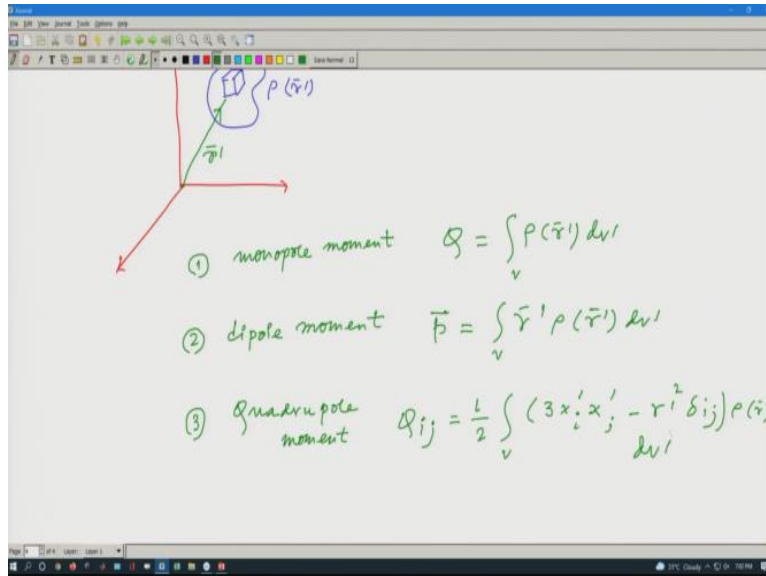 File Edit View Journal Tools Options Help
ρ(r̄')
r̄'
① monopole moment Q = ∫_v ρ(r̄') dv'
② dipole moment p̄ = ∫_v r̄' ρ(r̄') dv'
③ Quadrupole moment Q_ij = 1/2 ∫_v (3x'_i x'_j - r'^2 δ_ij) ρ(r̄
dv'